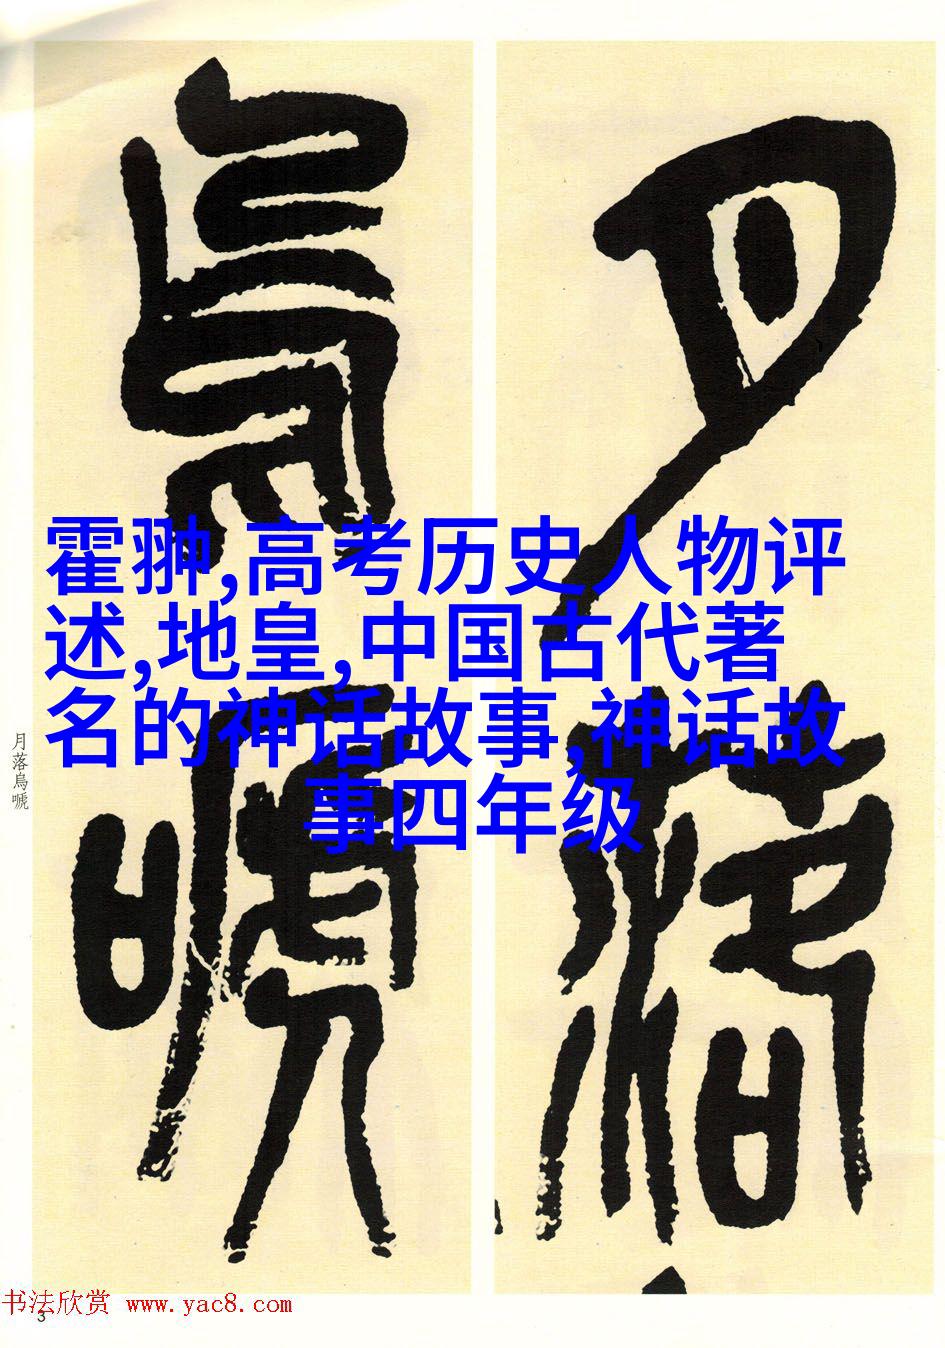 月落
烏嗁
霍翀,高考历史人物评
述,地皇,中国古代著
名的神话故事,神话故
事四年级
月落烏嗁
书法欣赏 www.yac8.com
3